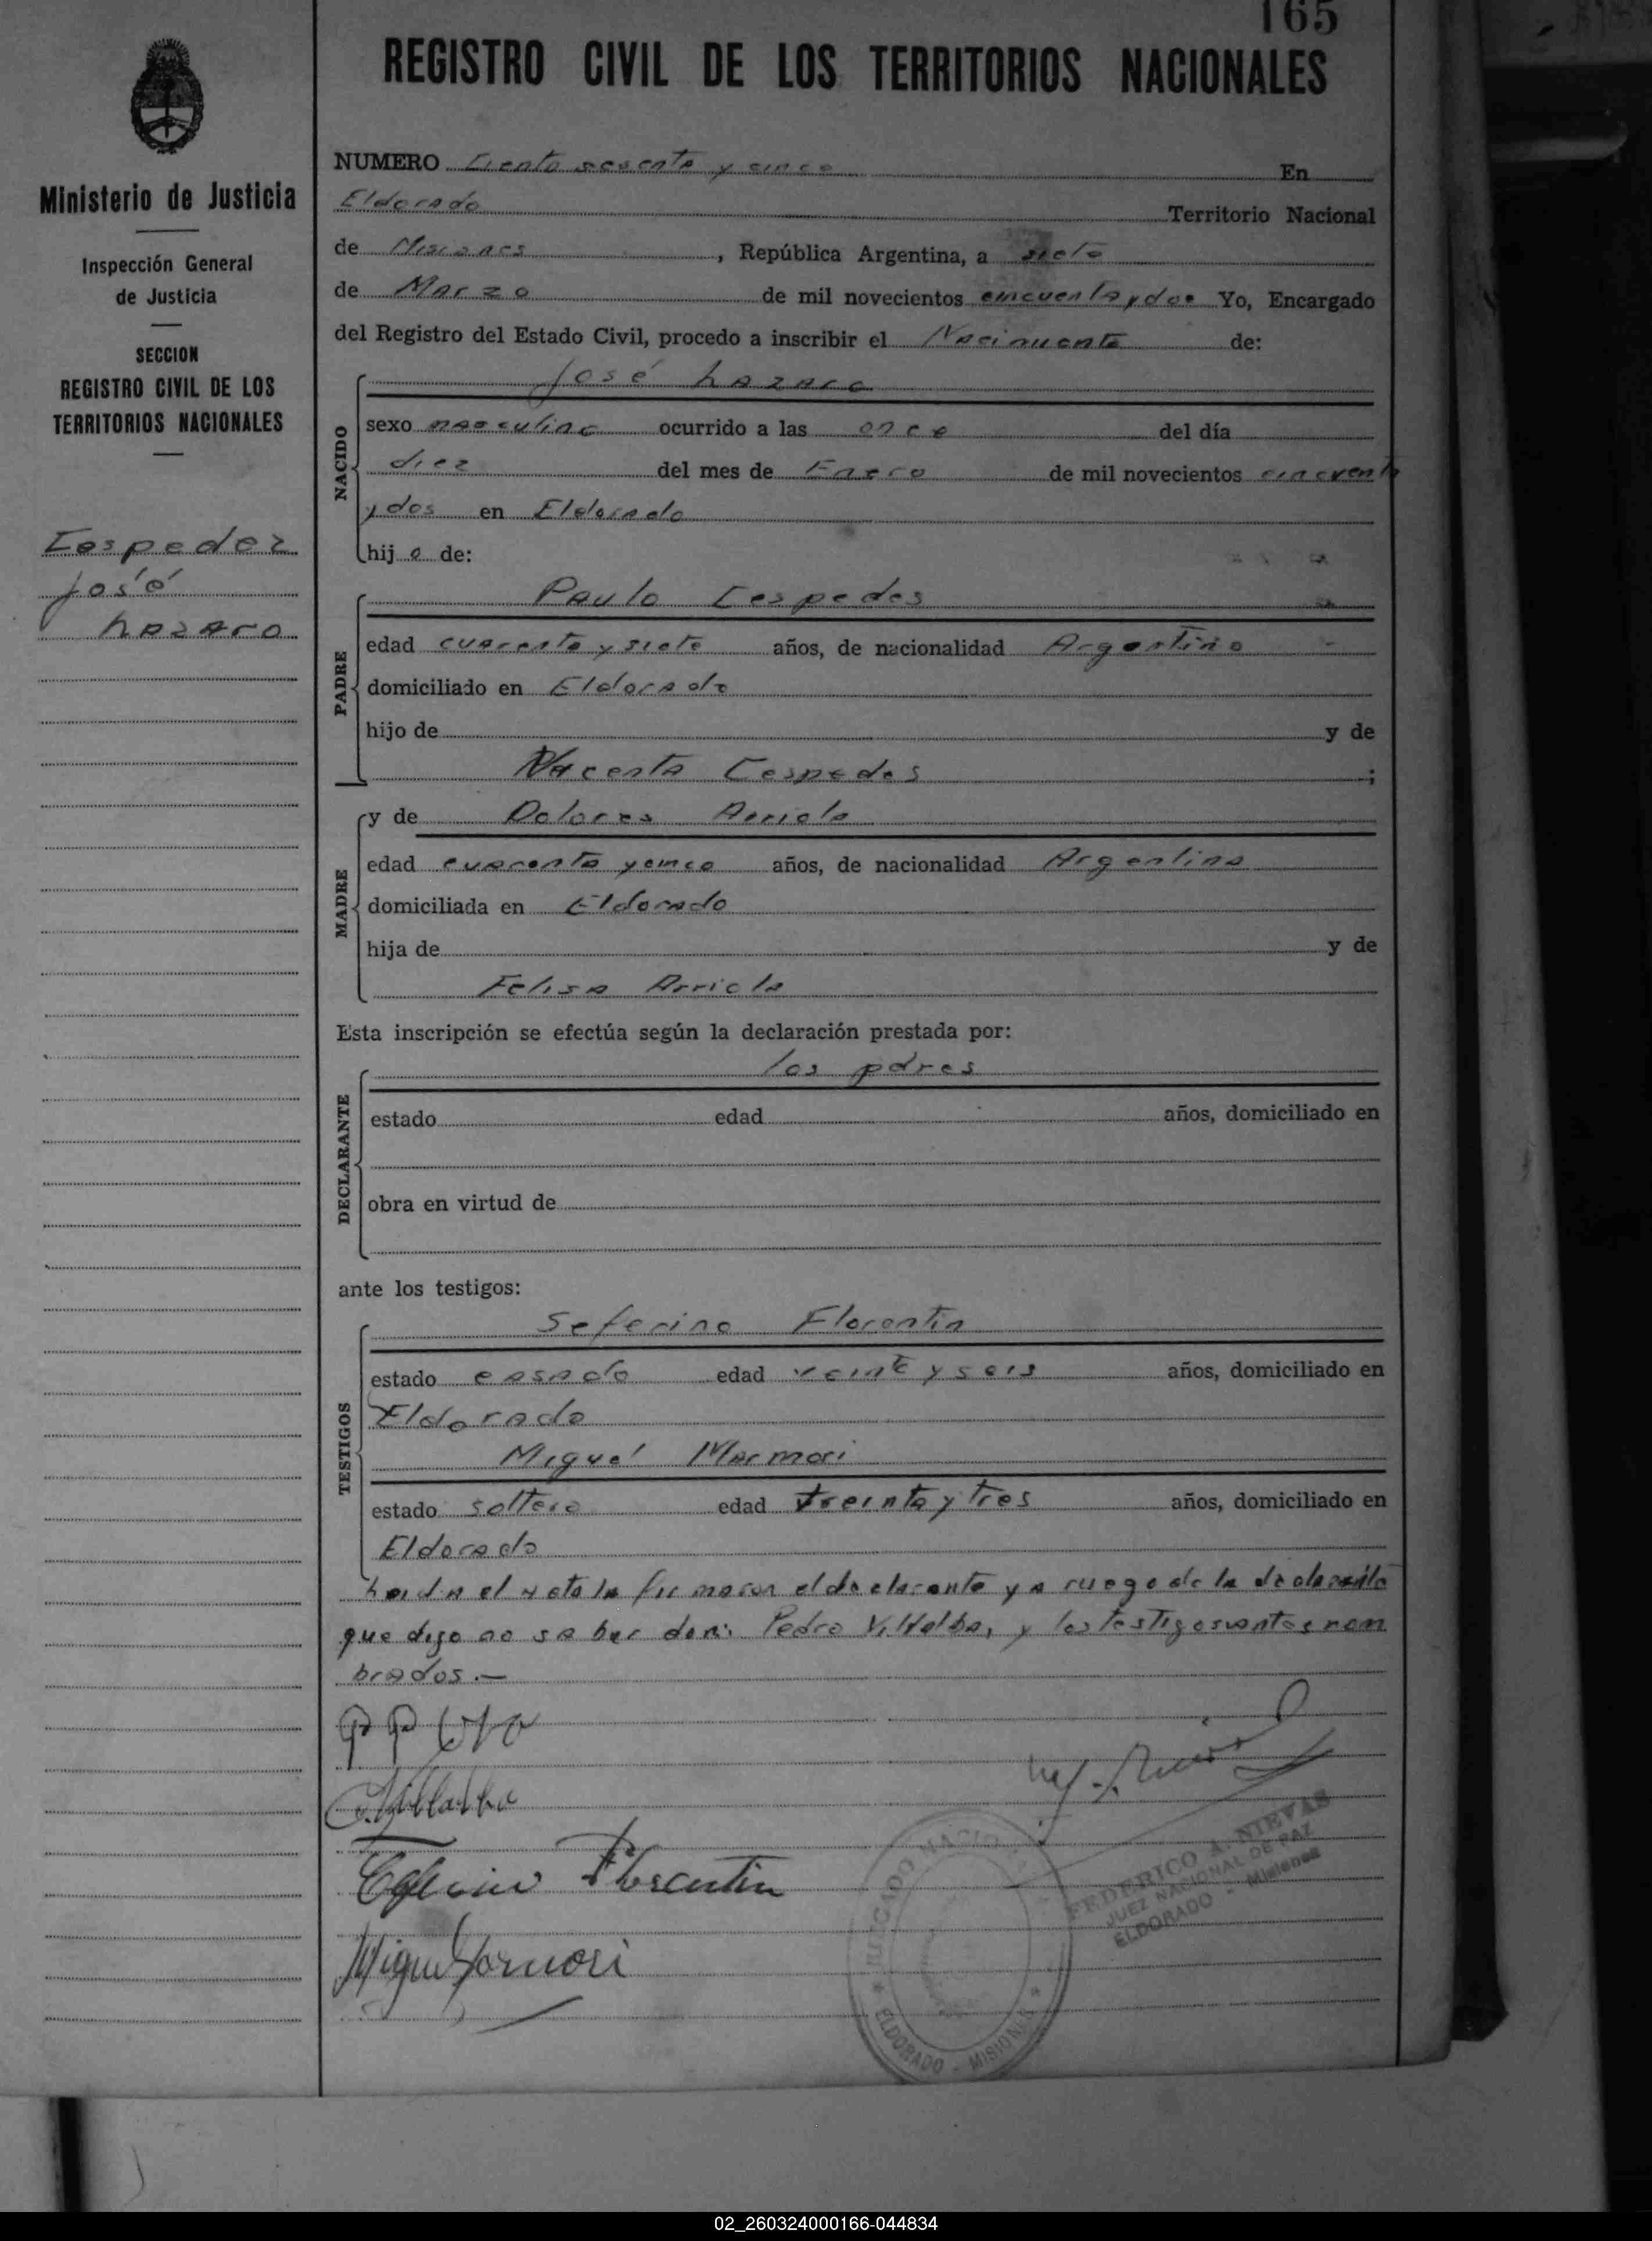 165
REGISTRO CIVIL DE LOS TERRITORIOS NACIONALES
Ministerio de Justicia
Inspección General
de Justicia
SECCION
REGISTRO CIVIL DE LOS
TERRITORIOS NACIONALES
Cespedez
José
Lazaro
NUMERO Ciento sesenta y cinco En
Eldorado Territorio Nacional
de Misiones, República Argentina, a siete
de Marzo de mil novecientos cincuenta y dos Yo, Encargado
del Registro del Estado Civil, procedo a inscribir el Nacimiento de:
NACIDO
José Lazaro
sexo masculino ocurrido a las once del día
diez del mes de Enero de mil novecientos cincuenta
y dos en Eldorado
hijo de:
PADRE
Paulo Cespedes
edad cuarenta y siete años, de nacionalidad Argentino
domiciliado en Eldorado
hijo de y de
Cespedes;
MADRE
y de Dolores Arriola
edad cuarenta y cinco años, de nacionalidad Argentina
domiciliada en Eldorado
hija de y de
Felisa Arriola
Esta inscripción se efectúa según la declaración prestada por:
DECLARANTE
los pdres
estado edad años, domiciliado en
obra en virtud de
ante los testigos:
TESTIGOS
Seferino Florentin
estado casado edad veinte y seis años, domiciliado en
Eldorado
Miguel Marmori
estado soltero edad treinta y tres años, domiciliado en
Eldorado
Leida el acta la firmaron el declarante y a ruego de la declarante
que dijo no saber don: Pedro Villalba, y los testigos antes nom
brados.—
Villalba
Florentin
Miguel Marmori
FEDERICO A. NIEVAS
JUEZ NACIONAL DE PAZ
ELDORADO - Misiones
JUZGADO NACIO
ELDORADO - MISIONES
02_260324000166-044834